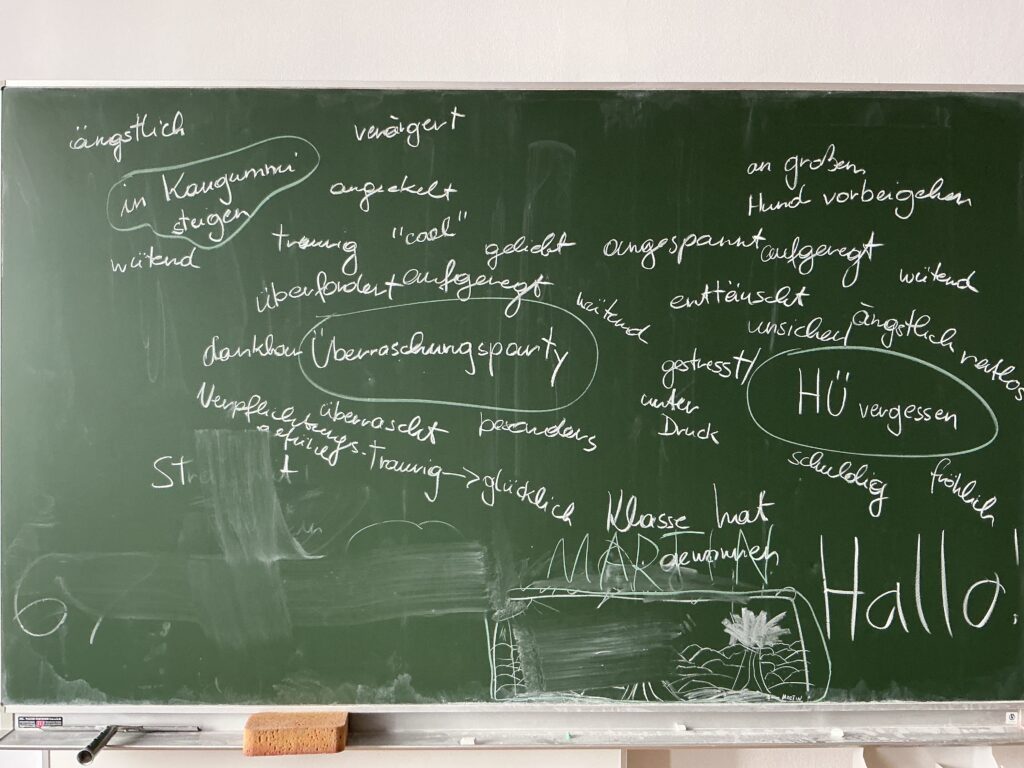 ängstlich
verärgert
in Kaugummi
steigen
wütend
angeekelt
an großem
Hund vorbeigehen
traurig
"cool"
geliebt
angespannt
aufgeregt
wütend
überfordert
aufgeregt
wütend
enttäuscht
unsicher
ängstlich
ratlos
dankbar
Überraschungsparty
gestresst/
unter
Druck
HÜ vergessen
Verpflichtungs-
gefühl
überrascht
besonders
schuldig
fröhlich
Traurig -> glücklich
Klasse hat
gewonnen
MARTIN
Hallo!
MARTIN